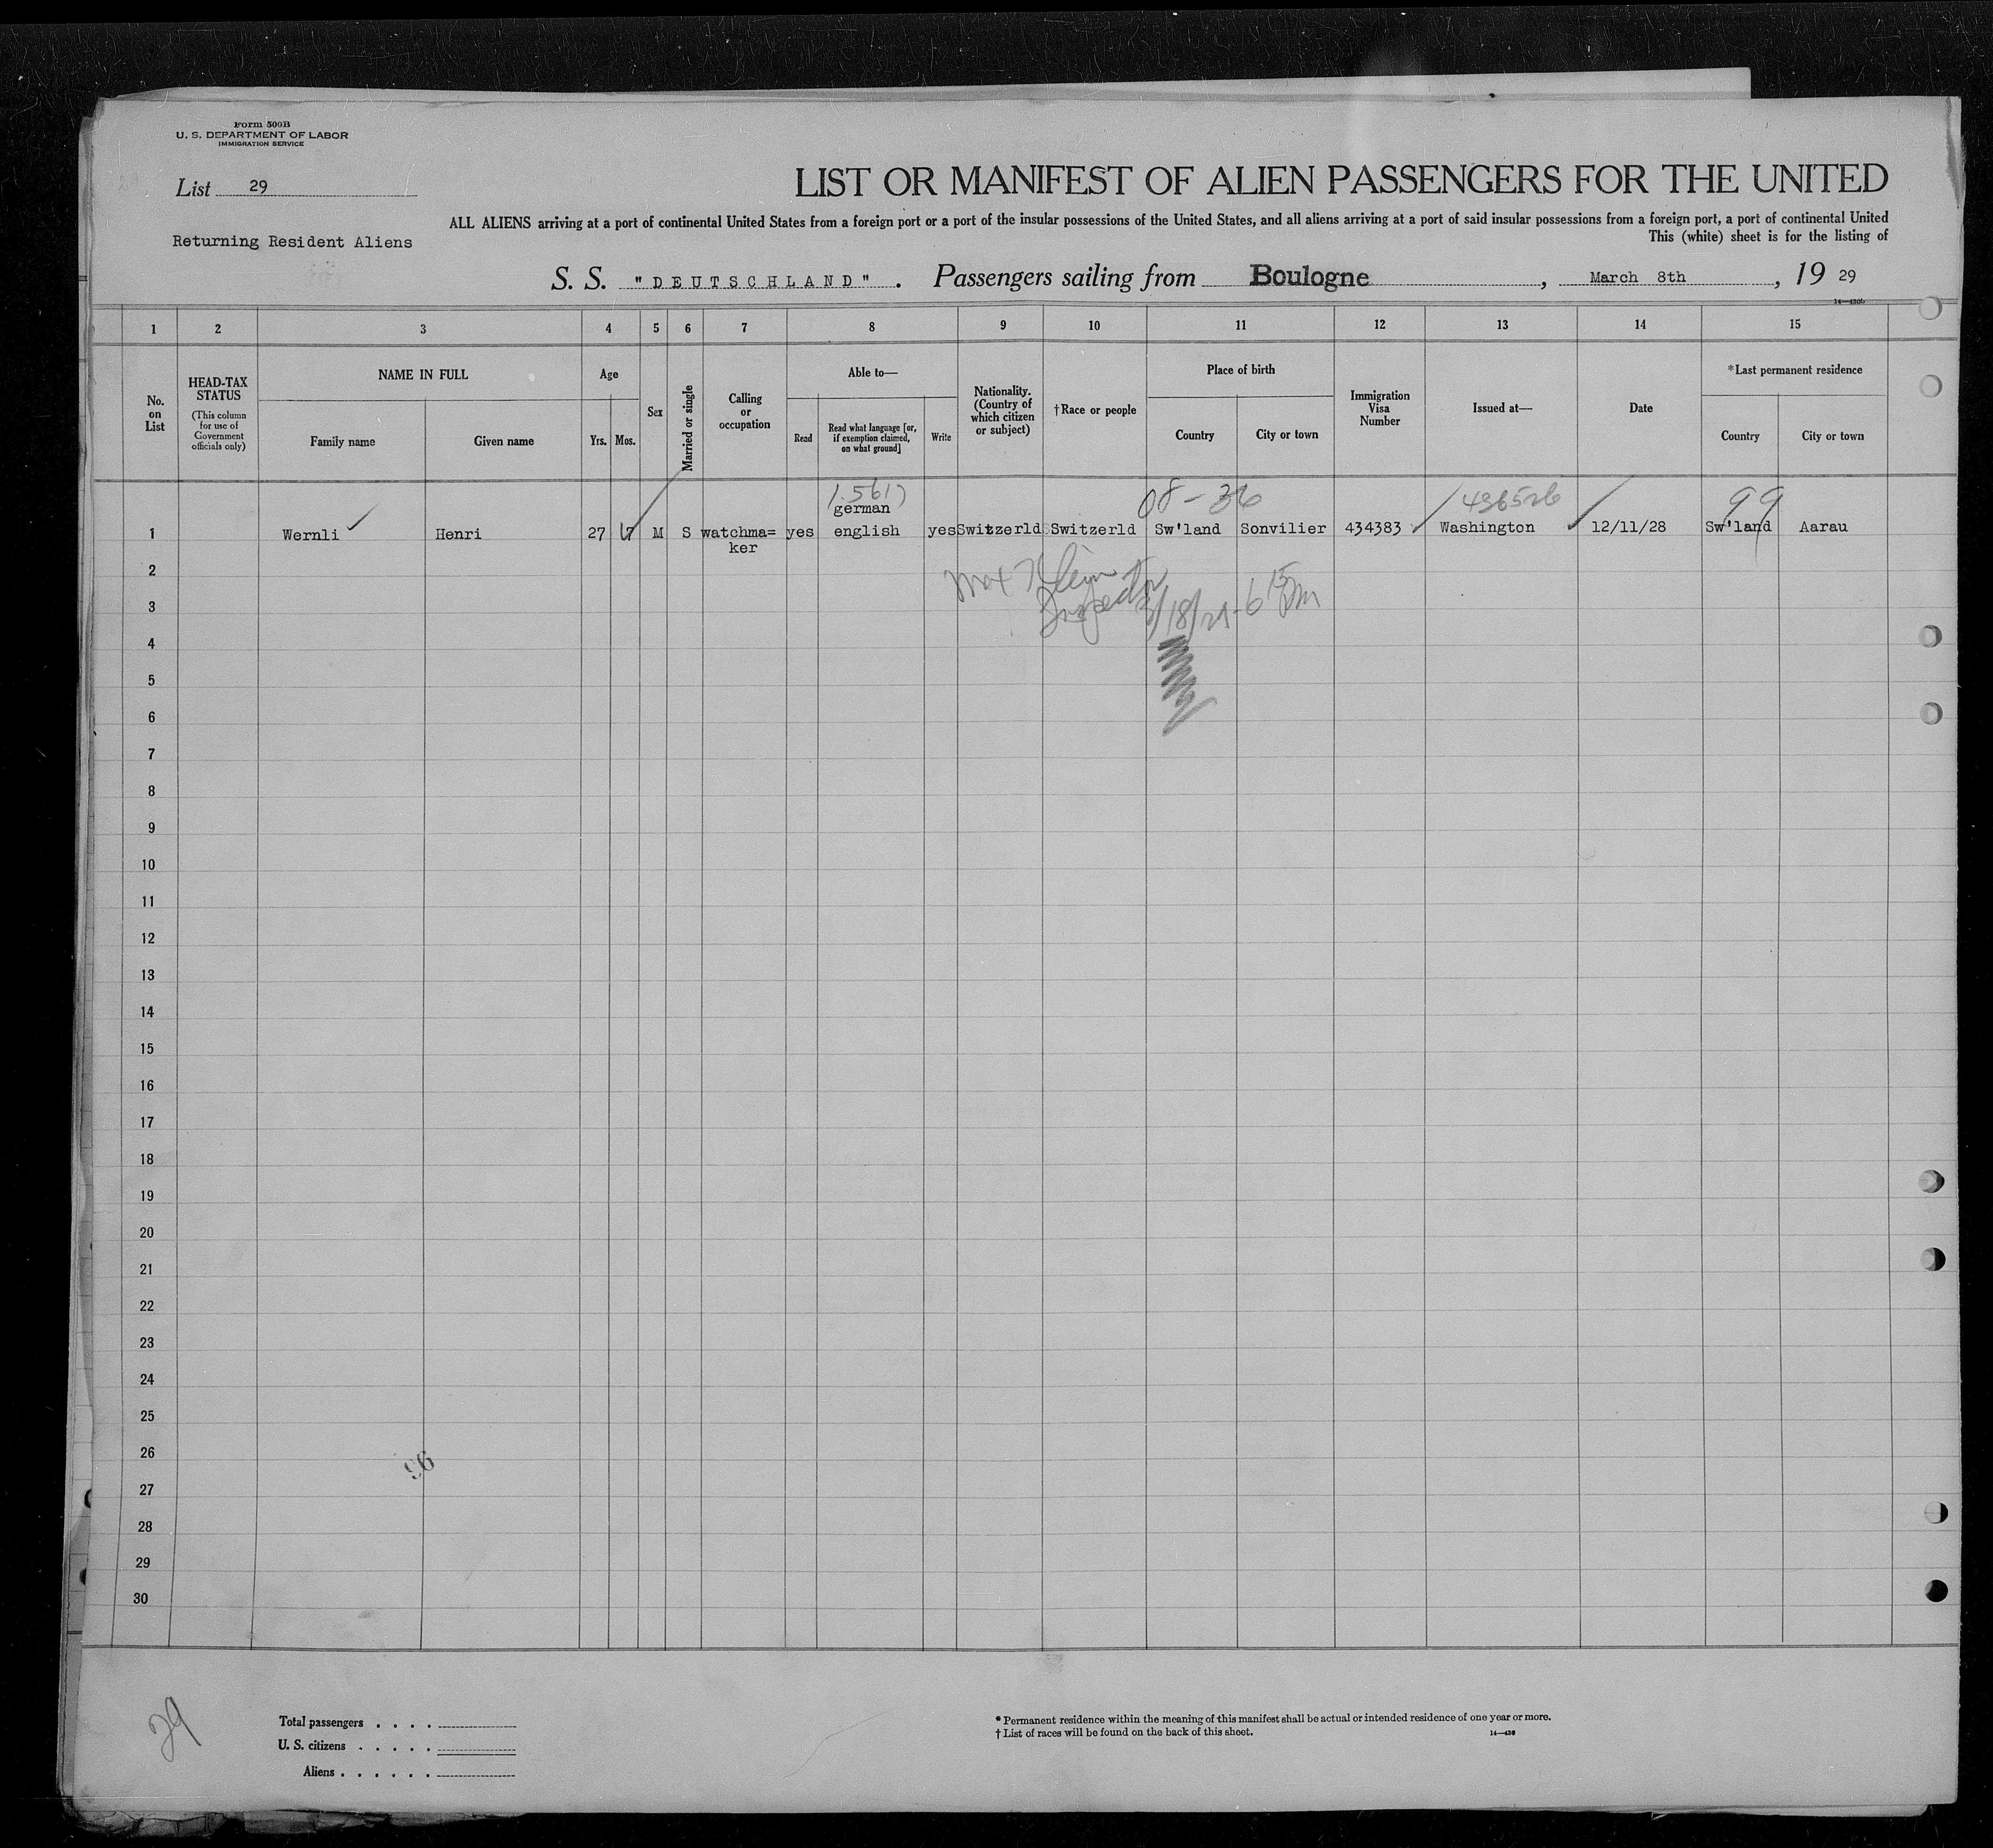 Form 500B
U. S. DEPARTMENT OF LABOR
IMMIGRATION SERVICE
List 29
LIST OR MANIFEST OF ALIEN PASSENGERS FOR THE UNITED
ALL ALIENS arriving at a port of continental United States from a foreign port or a port of the insular possessions of the United States, and all aliens arriving at a port of said insular possessions from a foreign port, a port of continental United
Returning Resident Aliens
This (white) sheet is for the listing of
S. S. "DEUTSCHLAND". Passengers sailing from Boulogne, March 8th, 19 29
1 2 3 4 5 6 7 8 9 10 11 12 13 14 15
No. on List
HEAD-TAX STATUS
(This column for use of Government officials only)
NAME IN FULL
Family name
Given name
Age
Yrs.
Mos.
Sex
Married or single
Calling or occupation
Able to—
Read
Read what language [or, if exemption claimed, on what ground]
Write
Nationality. (Country of which citizen or subject)
†Race or people
Place of birth
Country
City or town
Immigration Visa Number
Issued at—
Date
*Last permanent residence
Country
City or town
08-36
436526
99
german
1 Wernli Henri 27 M S watchma= yes english yes Switzerld Switzerld Sw'land Sonvilier 434383 Washington 12/11/28 Sw'land Aarau
ker
2
Inspector
3
3/18/29
4
5
6
7
8
9
10
11
12
13
14
15
16
17
18
19
20
21
22
23
24
25
26
96
27
28
29
30
29
Total passengers . . . .
U. S. citizens . . . . .
Aliens . . . . . .
* Permanent residence within the meaning of this manifest shall be actual or intended residence of one year or more.
† List of races will be found on the back of this sheet.